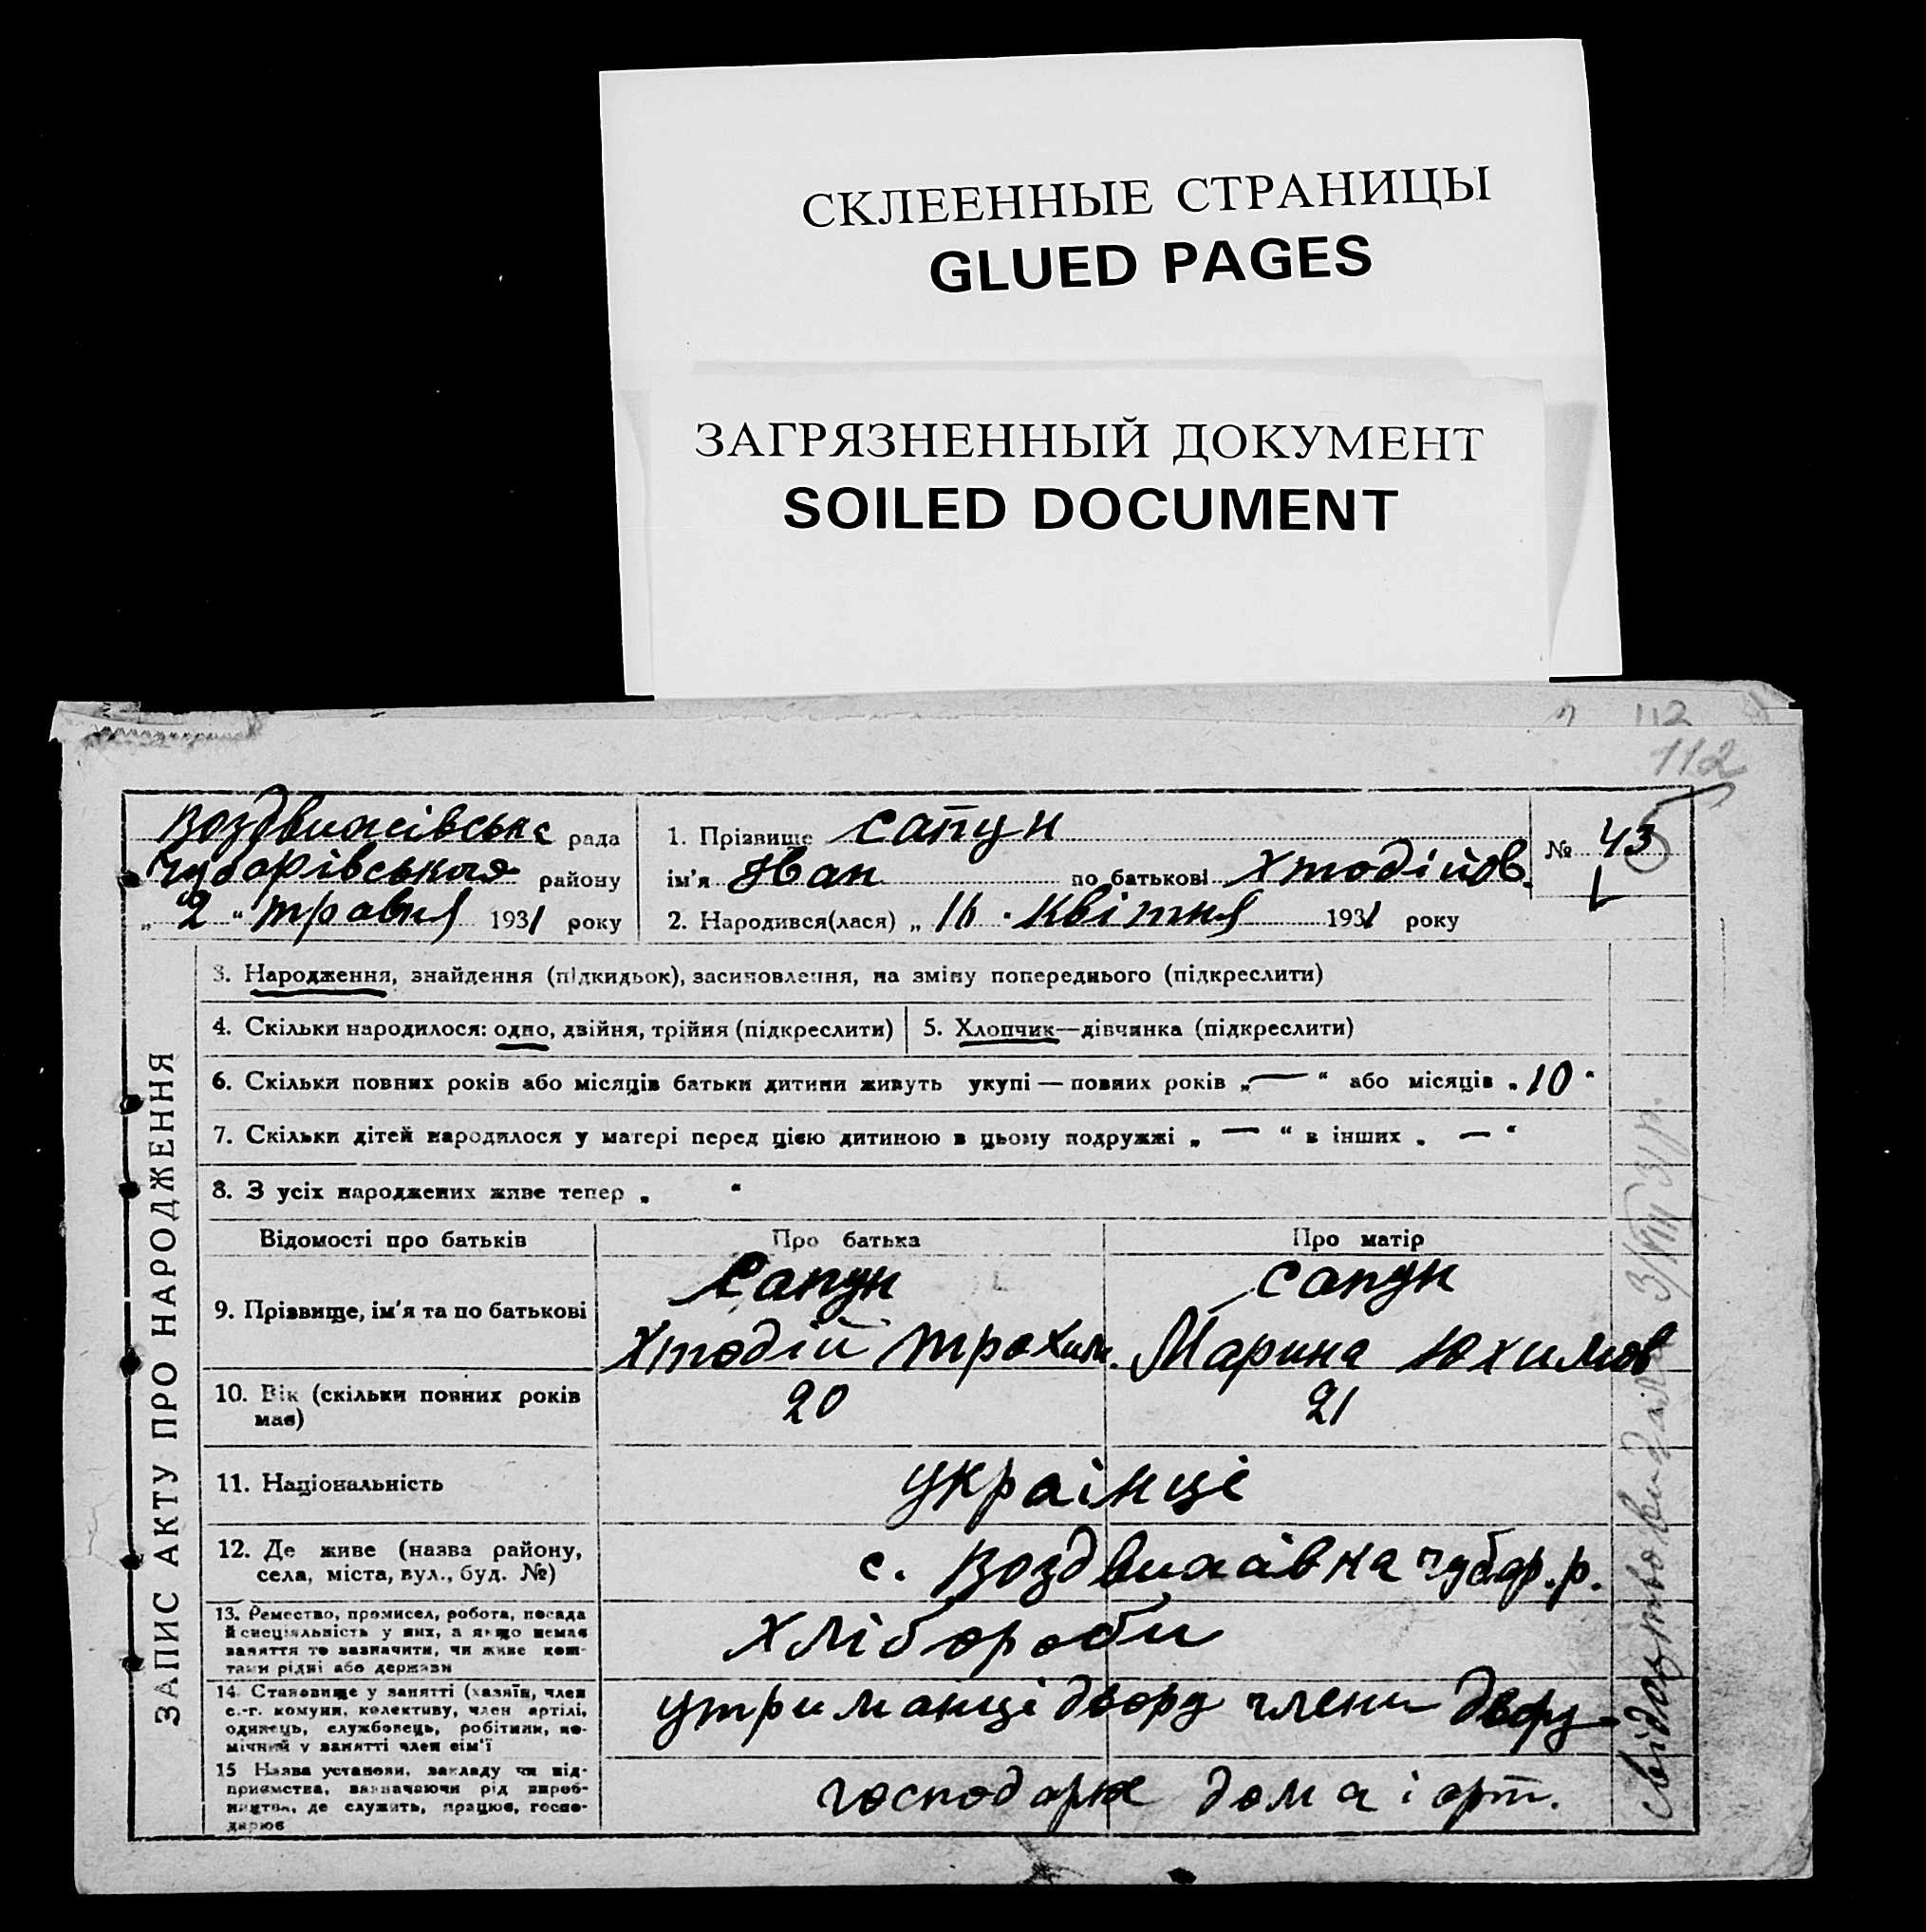 СКЛЕЕННЫЕ СТРАНИЦЫ
GLUED PAGES
ЗАГРЯЗНЕННЫЙ ДОКУМЕНТ
SOILED DOCUMENT
112
112
Воздвижівська рада
Чубарівського району
„ 2 “ травня 1931 року
1. Прізвище Сапун
ім'я Иван по батькові Хтодійов.
2. Народився(лася) „ 16 . Квітня 1931 року
№ 43
ЗАПИС АКТУ ПРО НАРОДЖЕННЯ
3. Народження, знайдення (підкидьок), засиновлення, на зміну попереднього (підкреслити)
4. Скільки народилося: одно, двійня, трійня (підкреслити)
5. Хлопчик—дівчинка (підкреслити)
6. Скільки повних років або місяців батьки дитини живуть укупі — повних років „ — “ або місяців „ 10 “
7. Скільки дітей народилося у матері перед цією дитиною в цьому подружжі „ — “ в інших „ — “
8. З усіх народжених живе тепер „ “
Відомості про батьків
Про батька
Про матір
9. Прізвище, ім'я та по батькові
Сапун
Хтодій Трохим.
Сапун
Марина Юхимов
10. Вік (скільки повних років
має)
20
21
11. Національність
українці
12. Де живе (назва району,
села, міста, вул., буд. №)
с. Воздвижівка Чубар. р.
13. Ремество, промисел, робота, посада
й спеціяльність у них, а якщо немає
заняття то зазначити, чи живе кош-
тами рідні або держави
хлібороби
14. Становище у занятті (хазяїн, член
с.-г. комуни, колективу, член артілі,
одинець, службовець, робітник, по-
мічний у занятті член сім'ї
утриманці двору члени двору
15 Назва установи, закладу чи під-
приємства, зазначаючи рід вироб-
ництва, де служить, працює, госпо-
дарює
господарка дома і арт.